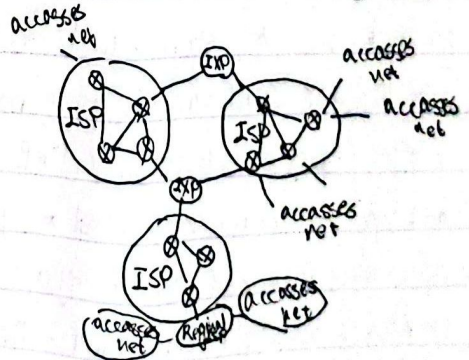 accasses
net
IXP
accasses
net
accasses
net
ISP
ISP
IXP
accasses
net
ISP
accasses
net
accasses
net